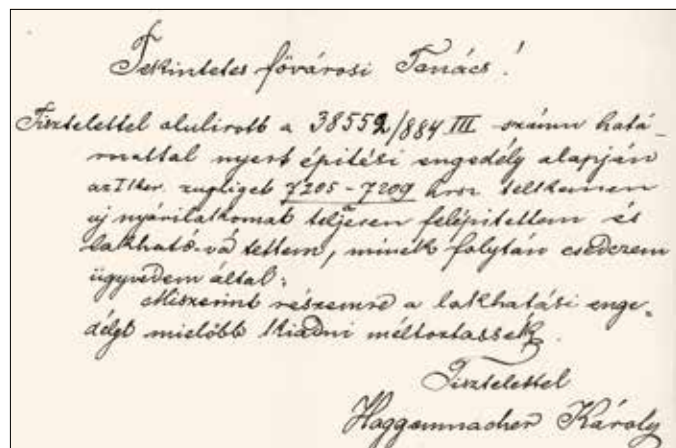 Tekintetes fővárosi Tanács!
Tisztelettel alulirott a 38552/884 III számu hatá-
rozattal nyert épitési engedély alapján
az I ker. zugligeti 7205-7209 hrsz telkemen
uj nyárilakomat teljesen felépitettem és
lakható-vá tettem, minek folytán esedezem
ügyvédem által:
Miszerint részemre a lakhatási enge-
délyt mielőbb kiadni méltoztassék.
Tisztelettel
Haggenmacher Károly